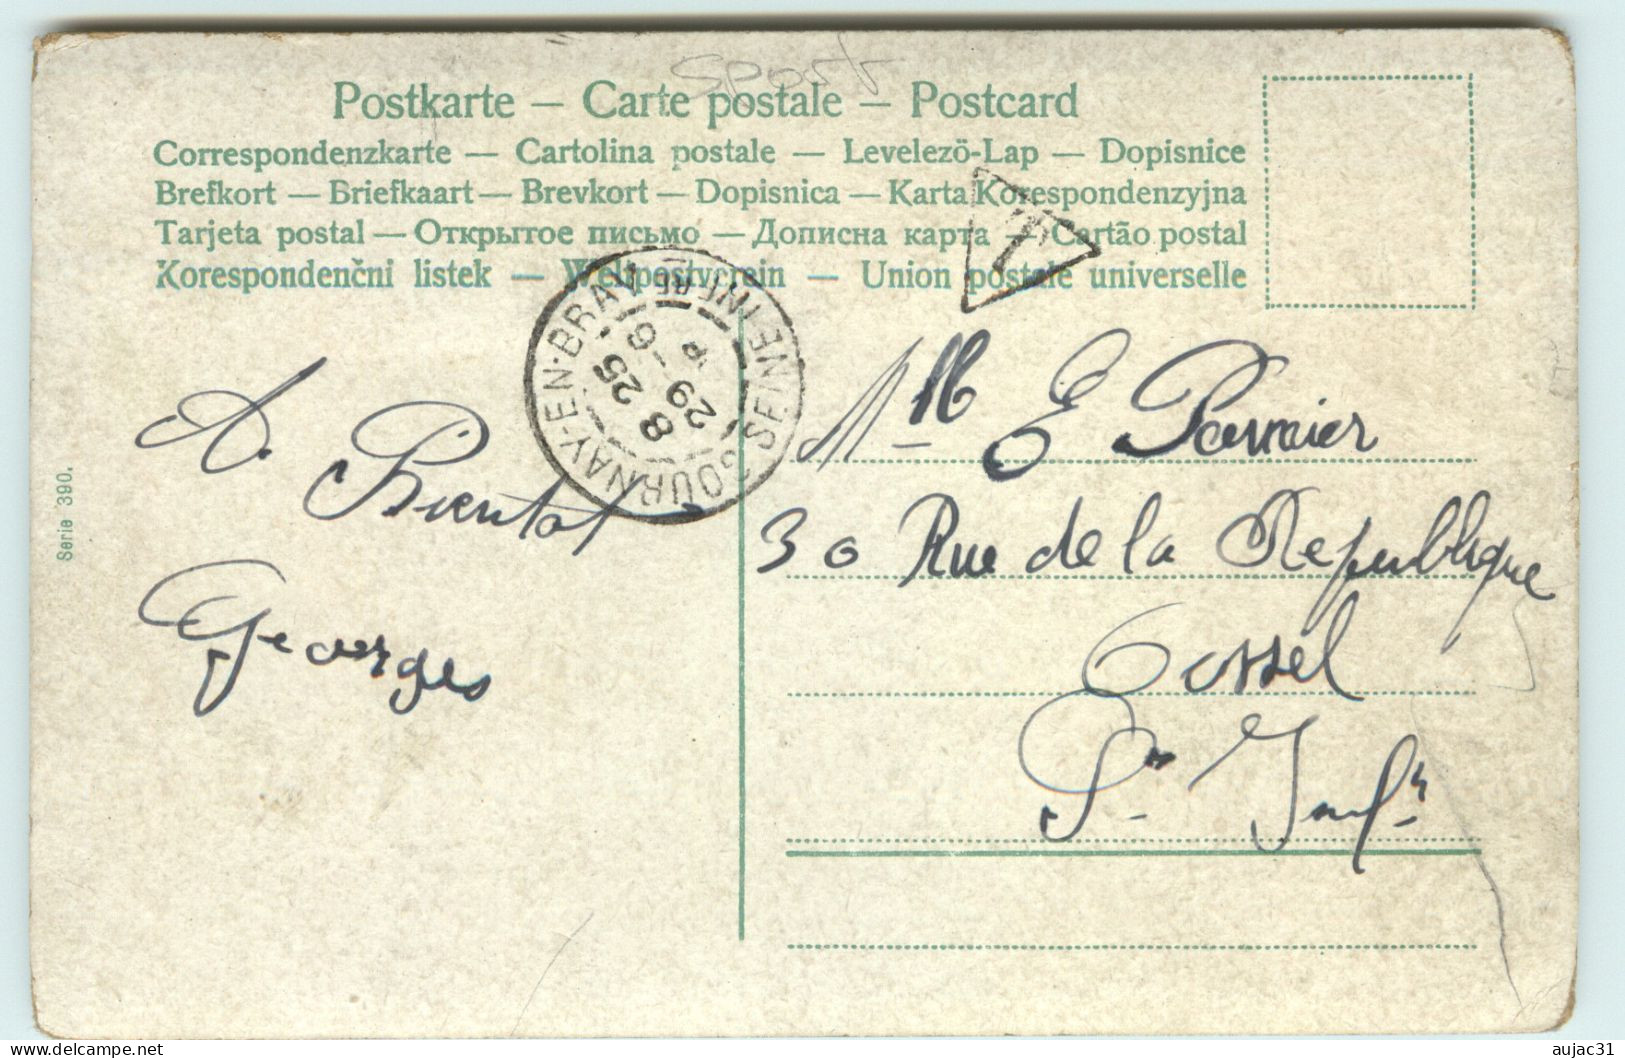 Sports
Postkarte — Carte postale — Postcard
Correspondenzkarte — Cartolina postale — Levelezö-Lap — Dopisnice
Brefkort — Briefkaart — Brevkort — Dopisnica — Karta Korespondenzyjna
Tarjeta postal — Открытое письмо — Дописна карта — Cartão postal
Korespondenčni listek — Weltpostverein — Union postale universelle
T
GOURNAY-EN-BRAY
SEINE INFRE
8 25
29 - 6
Serie 390.
A Bientot
Georges
Mlle E
30 Rue de la Republique
Sne Infr
aujac31